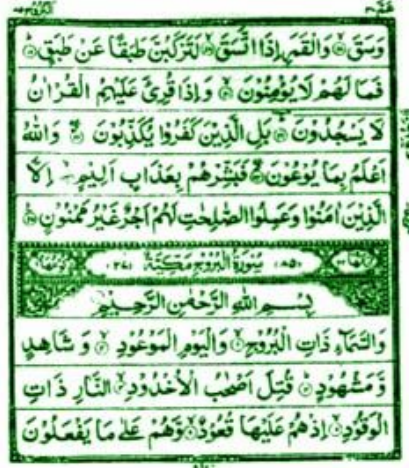 عم ٣٠ البروج ٨٥
وَسَقَ ۙ وَالْقَمَرِ اِذَا اتَّسَقَ ۙ لَتَرْكَبُنَّ طَبَقًا عَنْ طَبَقٍ ؕ
فَمَا لَهُمْ لَا يُؤْمِنُوْنَ ۙ وَ اِذَا قُرِئَ عَلَيْهِمُ الْقُرْاٰنُ
لَا يَسْجُدُوْنَ ؕ بَلِ الَّذِيْنَ كَفَرُوْا يُكَذِّبُوْنَ ۖ وَاللّٰهُ
اَعْلَمُ بِمَا يُوْعُوْنَ ۖ فَبَشِّرْهُمْ بِعَذَابٍ اَلِيْمٍ ۙ اِلَّا
الَّذِيْنَ اٰمَنُوْا وَعَمِلُوا الصّٰلِحٰتِ لَهُمْ اَجْرٌ غَيْرُ مَمْنُوْنٍ
(٨٥) سُوْرَةُ الْبُرُوْجِ مَكِّيَّةٌ (٢٧)
بِسْمِ اللّٰهِ الرَّحْمٰنِ الرَّحِيْمِ
وَالسَّمَآءِ ذَاتِ الْبُرُوْجِ ۙ وَالْيَوْمِ الْمَوْعُوْدِ ۙ وَ شَاهِدٍ
وَّمَشْهُوْدٍ ؕ قُتِلَ اَصْحٰبُ الْاُخْدُوْدِ ۙ النَّارِ ذَاتِ
الْوَقُوْدِ ۙ اِذْ هُمْ عَلَيْهَا قُعُوْدٌ ۙ وَّهُمْ عَلٰى مَا يَفْعَلُوْنَ